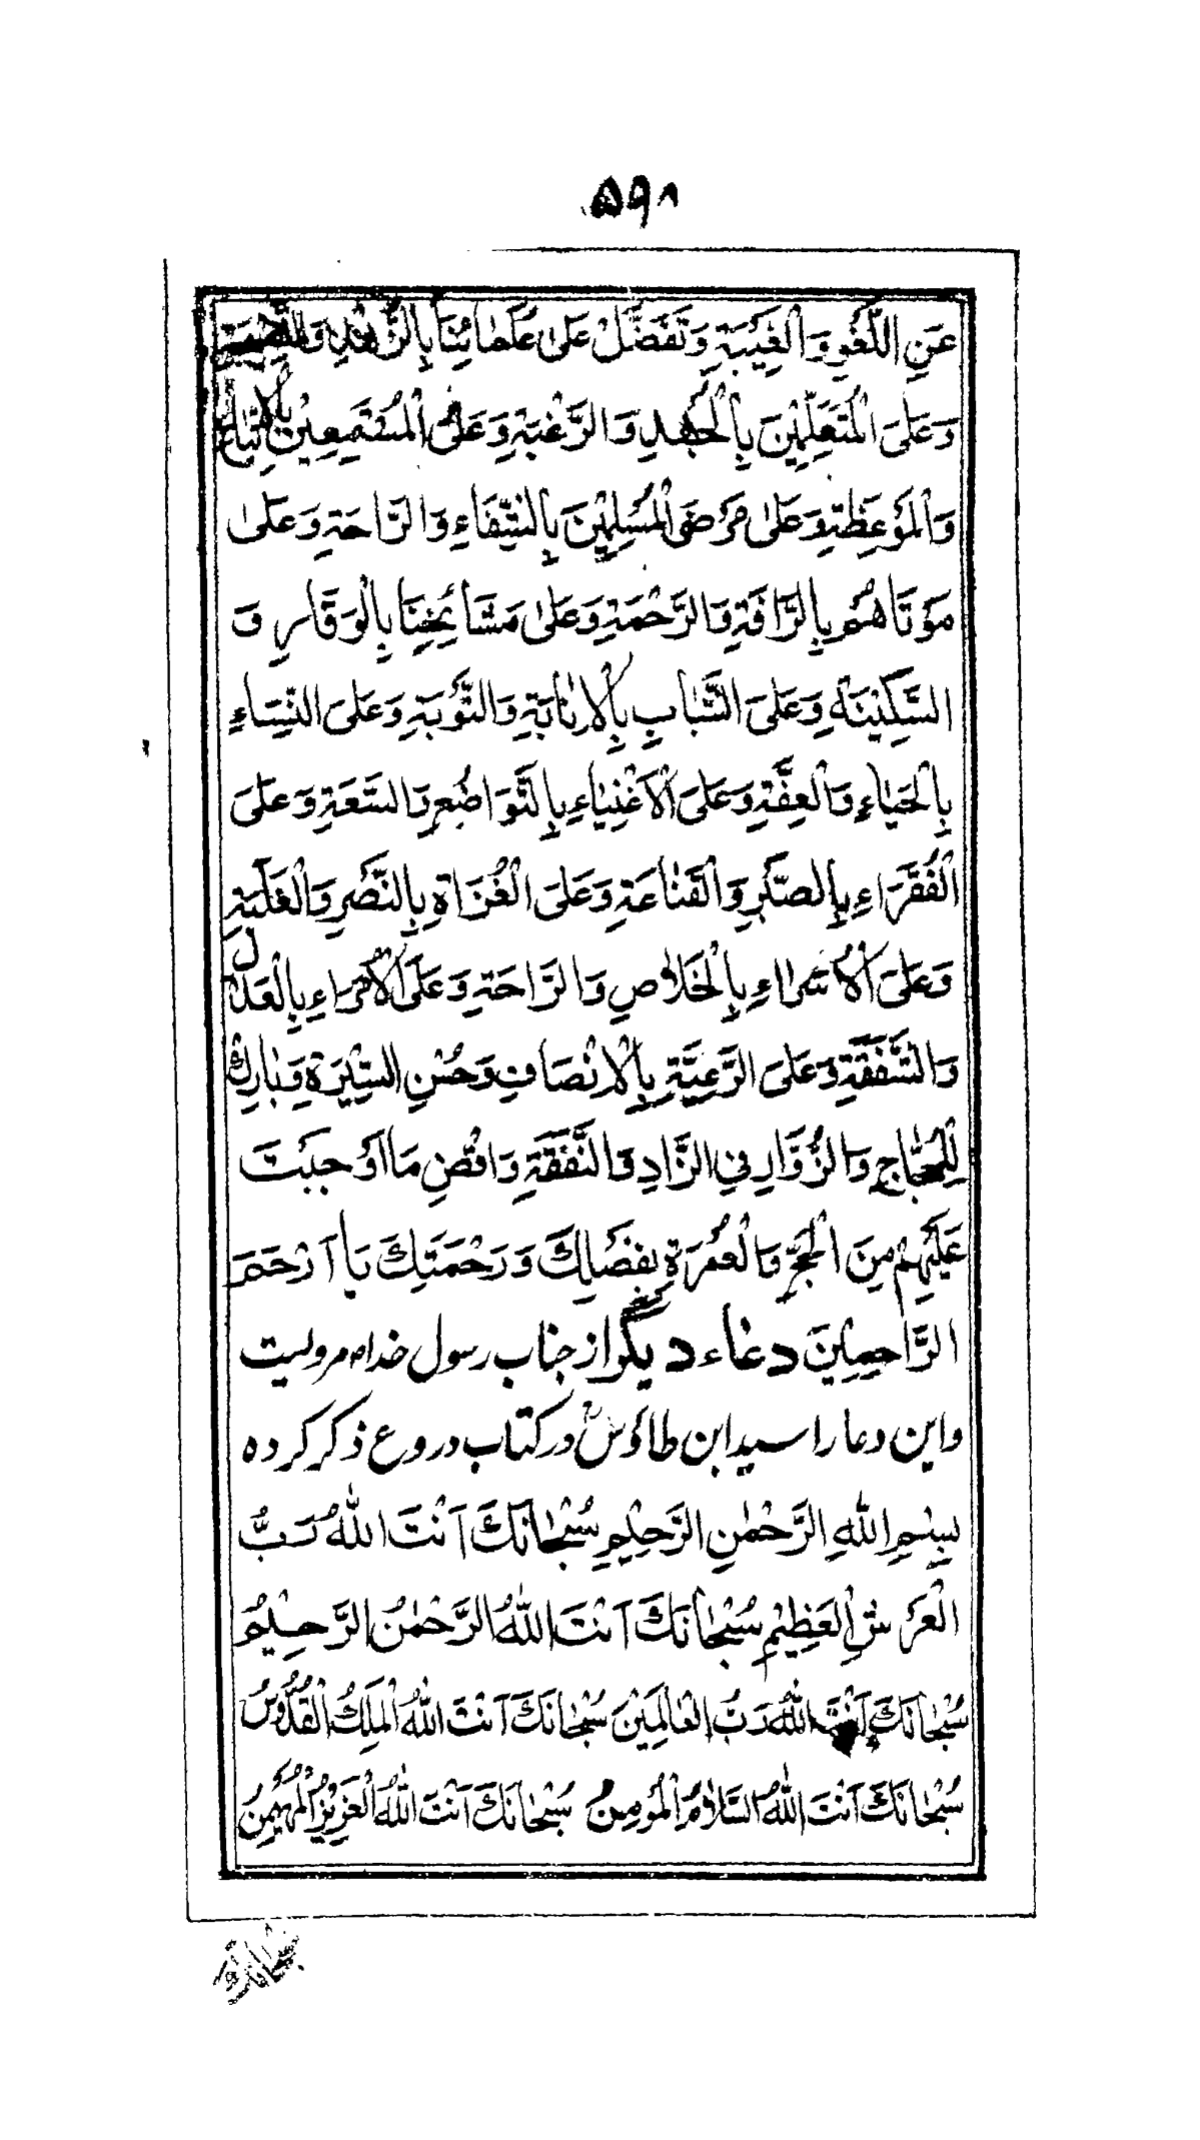 ۵۹۸
عَنِ اللَّغْوِ وَالْغِيْبَةِ وَتَفَضَّلْ عَلٰى عُلَمَائِنَا بِالزُّهْدِ وَالنَّصِيْحَةِ
وَعَلَى الْمُتَعَلِّمِيْنَ بِالْجُهْدِ وَالرَّغْبَةِ وَعَلَى الْمُسْتَمِعِيْنَ بِالْاِتِّبَاعِ
وَالْمَوْعِظَةِ وَعَلٰى مَرْضَى الْمُسْلِمِيْنَ بِالشِّفَاءِ وَالرَّاحَةِ وَعَلٰى
مَوْتَاهُمْ بِالرَّافَةِ وَالرَّحْمَةِ وَعَلٰى مَشَائِخِنَا بِالْوَقَارِ وَ
السَّكِيْنَةِ وَعَلَى الشَّبَابِ بِالْاِنَابَةِ وَالتَّوْبَةِ وَعَلَى النِّسَاءِ
بِالْحَيَاءِ وَالْعِفَّةِ وَعَلَى الْاَغْنِيَاءِ بِالتَّوَاضُعِ وَالسَّعَةِ وَعَلَى
الْفُقَرَاءِ بِالصَّبْرِ وَالْقَنَاعَةِ وَعَلَى الْغُزَاةِ بِالنَّصْرِ وَالْغَلَبَةِ
وَعَلَى الْاُسَرَاءِ بِالْخَلَاصِ وَالرَّاحَةِ وَعَلَى الْاُمَرَاءِ بِالْعَدْلِ
وَالشَّفَقَةِ وَعَلَى الرَّعِيَّةِ بِالْاِنْصَافِ وَحُسْنِ السِّيْرَةِ وَبَارِكْ
لِلْحُجَّاجِ وَالزُّوَّارِ فِي الزَّادِ وَالنَّفَقَةِ وَاقْضِ مَا اَوْجَبْتَ
عَلَيْهِمْ مِنَ الْحَجِّ وَالْعُمْرَةِ بِفَضْلِكَ وَرَحْمَتِكَ يَا اَرْحَمَ
الرَّاحِمِيْنَ دعاء دیگر از جناب رسول خدا ص مرویست
واین دعا را سید ابن طاؤسؒ در کتاب دروع ذکر کرده
بِسْمِ اللهِ الرَّحْمٰنِ الرَّحِيْمِ سُبْحَانَكَ اَنْتَ اللهُ رَبُّ
الْعَرْشِ الْعَظِيْمِ سُبْحَانَكَ اَنْتَ اللهُ الرَّحْمٰنُ الرَّحِيْمُ
سُبْحَانَكَ اَنْتَ اللهُ رَبُّ الْعَالَمِيْنَ سُبْحَانَكَ اَنْتَ اللهُ الْمَلِكُ الْقُدُّوْسُ
سُبْحَانَكَ اَنْتَ اللهُ السَّلَامُ الْمُؤْمِنُ سُبْحَانَكَ اَنْتَ اللهُ الْعَزِيْزُ الْمُهَيْمِنُ
سبحانک